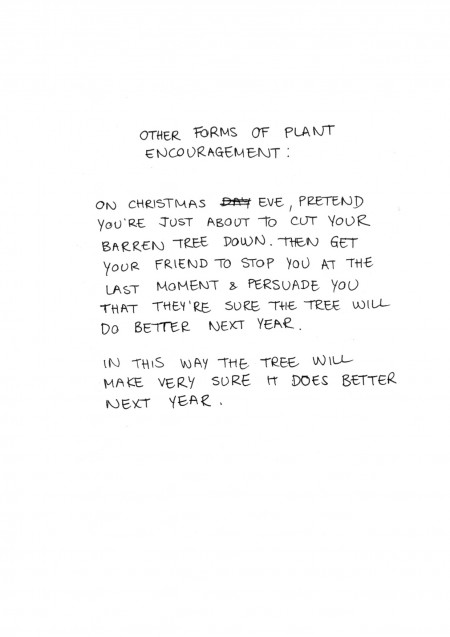 OTHER FORMS OF PLANT
ENCOURAGEMENT:
ON CHRISTMAS DAY EVE, PRETEND
YOU'RE JUST ABOUT TO CUT YOUR
BARREN TREE DOWN. THEN GET
YOUR FRIEND TO STOP YOU AT THE
LAST MOMENT & PERSUADE YOU
THAT THEY'RE SURE THE TREE WILL
DO BETTER NEXT YEAR.
IN THIS WAY THE TREE WILL
MAKE VERY SURE IT DOES BETTER
NEXT YEAR.